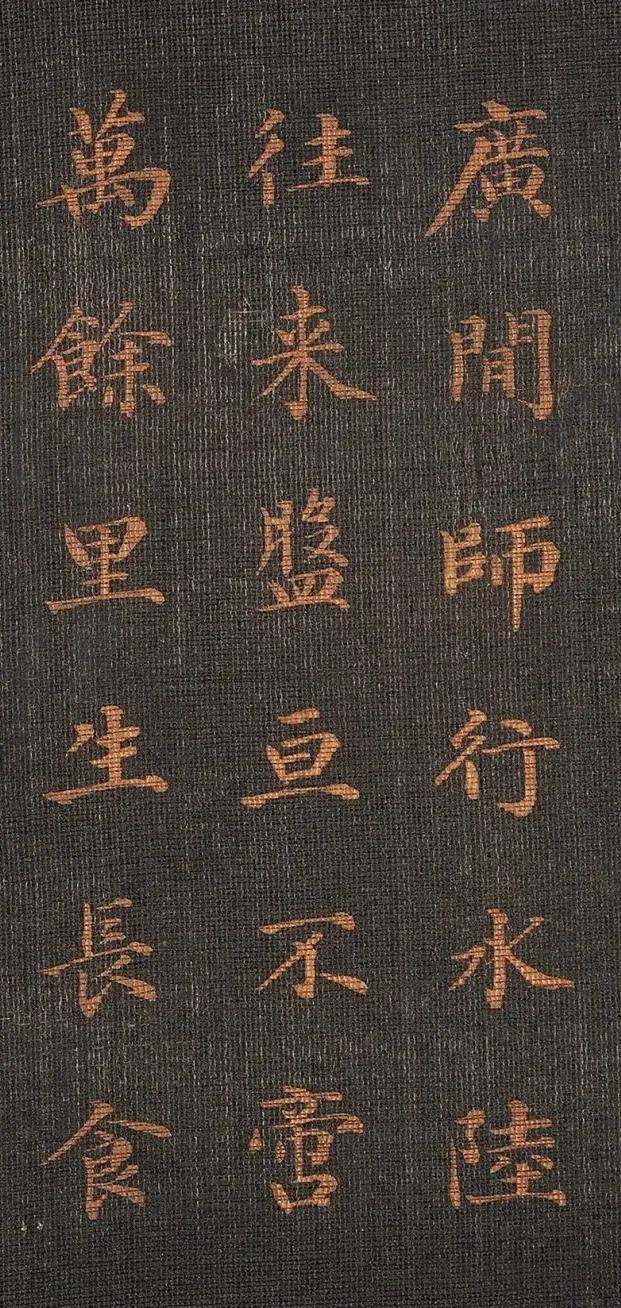 廣閒師行水陸
往来盤亘不啻
萬餘里生長食